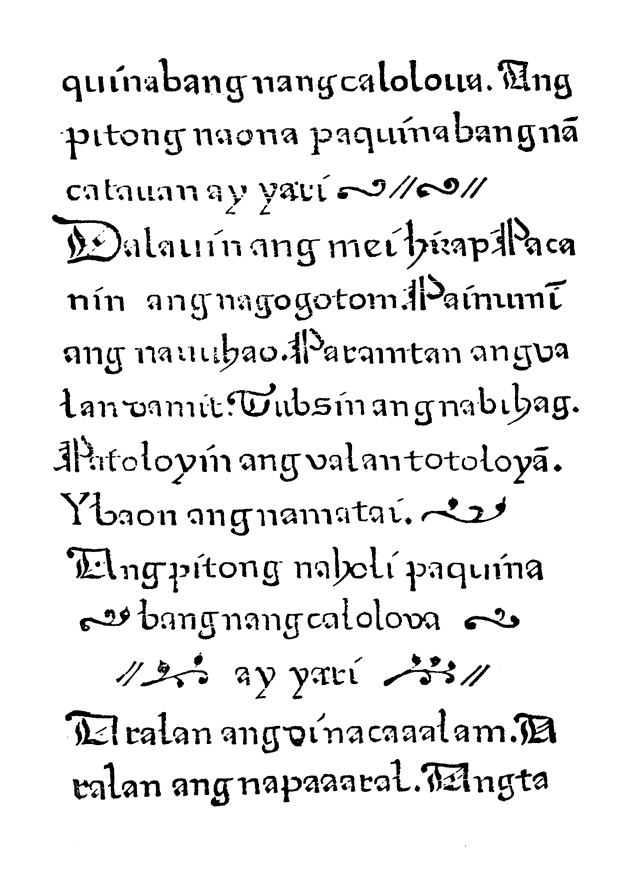 quinabang nang caloloua. Ang
pitong naona paquinabang nã
catauan ay yari // //
Dalauin ang mei hirap. Paca
nin ang nagogotom. Painumĩ
ang nauuhao. Paramtan ang va
lan damit. Tubsin ang nabihag.
Patoloyin ang valan totoloyã.
Ybaon ang namatai.
Ang pitong naholi paquina
bang nang calolova
// ay yari //
Aralan ang di nacaaalam. A
ralan ang napaaaral. Ang ta